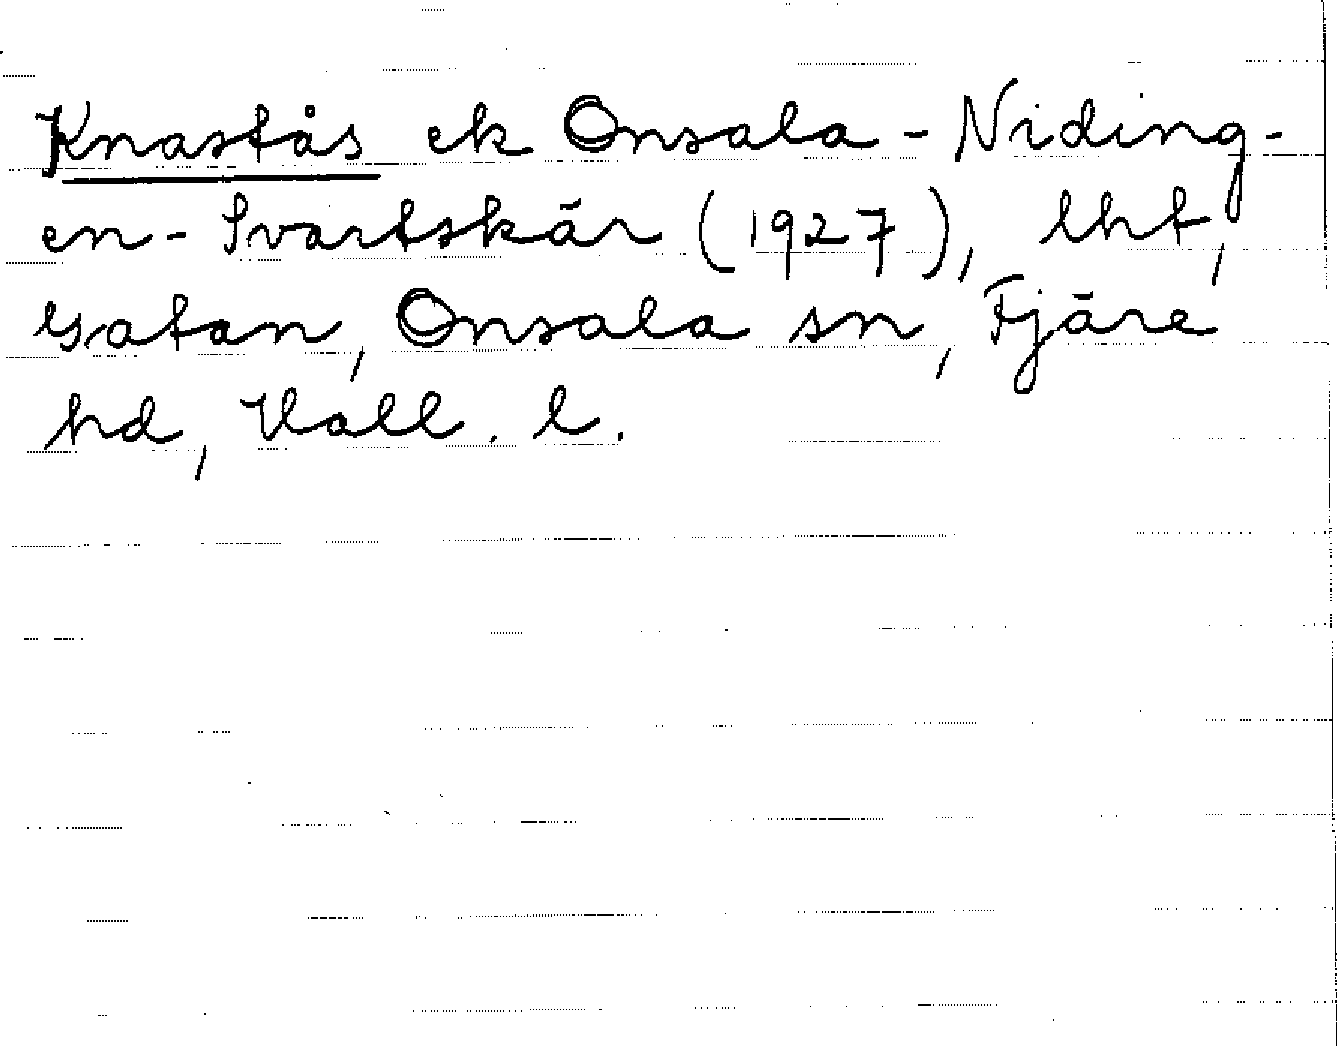 Knastås ek Onsala - Niding-
en - Svartskär (1927), lht,
Gatan, Onsala sn, Fjäre
hd, Hall. l.